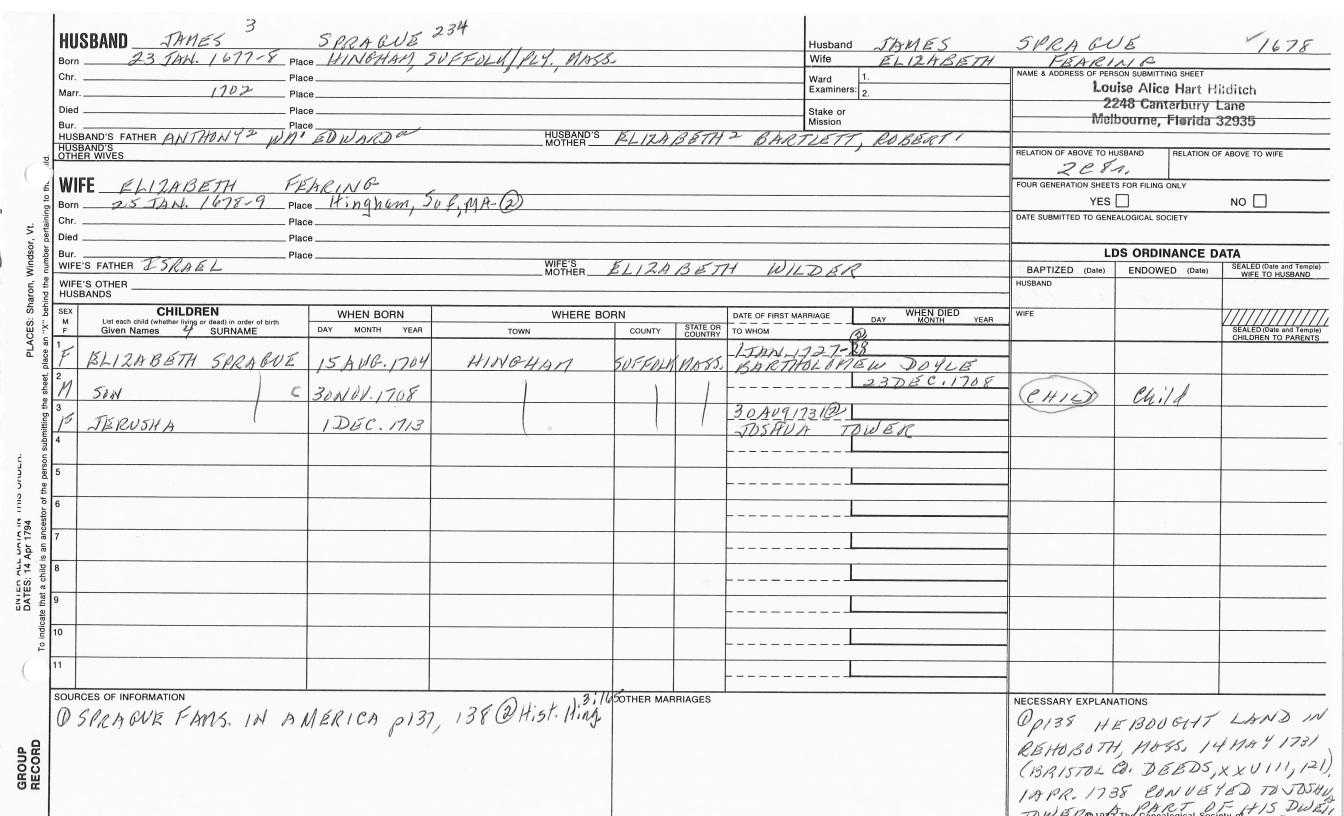 HUSBAND JAMES 3 SPRAGUE 234
Born 23 JAN. 1677-8 Place HINGHAM, SUFFOLK/PLY., MASS.
Chr. Place
Marr. 1702 Place
Died Place
Bur. Place
HUSBAND'S FATHER ANTHONY2 WM' EDWARDa HUSBAND'S MOTHER ELIZABETH2 BARTLETT, ROBERT'
HUSBAND'S OTHER WIVES
Husband JAMES SPRAGUE ✓1678
Wife ELIZABETH FEARING
Ward Examiners: 1. 2.
Stake or Mission
NAME & ADDRESS OF PERSON SUBMITTING SHEET
Louise Alice Hart Hilditch
2248 Canterbury Lane
Melbourne, Florida 32935
RELATION OF ABOVE TO HUSBAND RELATION OF ABOVE TO WIFE
FOUR GENERATION SHEETS FOR FILING ONLY
YES NO
DATE SUBMITTED TO GENEALOGICAL SOCIETY
WIFE ELIZABETH FEARING
Born 25 JAN. 1678-9 Place Hingham, Suf, MA-②
Chr. Place
Died Place
Bur. Place
WIFE'S FATHER ISRAEL WIFE'S MOTHER ELIZABETH WILDER
WIFE'S OTHER HUSBANDS
LDS ORDINANCE DATA
BAPTIZED (Date) ENDOWED (Date) SEALED (Date and Temple) WIFE TO HUSBAND
HUSBAND
WIFE
SEALED (Date and Temple) CHILDREN TO PARENTS
SEX M F
CHILDREN
List each child (whether living or dead) in order of birth
Given Names 4 SURNAME
WHEN BORN
DAY MONTH YEAR
WHERE BORN
TOWN COUNTY STATE OR COUNTRY
DATE OF FIRST MARRIAGE
TO WHOM
WHEN DIED
DAY MONTH YEAR
1 F ELIZABETH SPRAGUE 15 AUG. 1704 HINGHAM SUFFOLK MASS. 1 JAN. 1727-28 ②
BARTHOLOMEW DOYLE
2 M SON C 30 NOV. 1708 23 DEC. 1708 CHILD Child
3 F JERUSHA 1 DEC. 1713 30 AUG 1731②
JOSHUA TOWER
4
5
6
7
8
9
10
11
SOURCES OF INFORMATION
① SPRAGUE FAMS. IN AMERICA p137, 138 ② Hist. Hing. 3:165
OTHER MARRIAGES
NECESSARY EXPLANATIONS
①p138 HE BOUGHT LAND IN
REHOBOTH, MASS. 14 MAY 1731
(BRISTOL CO. DEEDS, XXVIII, 121).
1 APR. 1738 CONVEYED TO JOSHUA
TOWER A PART OF HIS DWELL
PLACES: Sharon, Windsor, Vt.
ENTER ALL DATA IN THIS ORDER:
DATES: 14 Apr 1794
To indicate that a child is an ancestor of the person submitting the sheet, place an "X" behind the number pertaining to th
GROUP RECORD